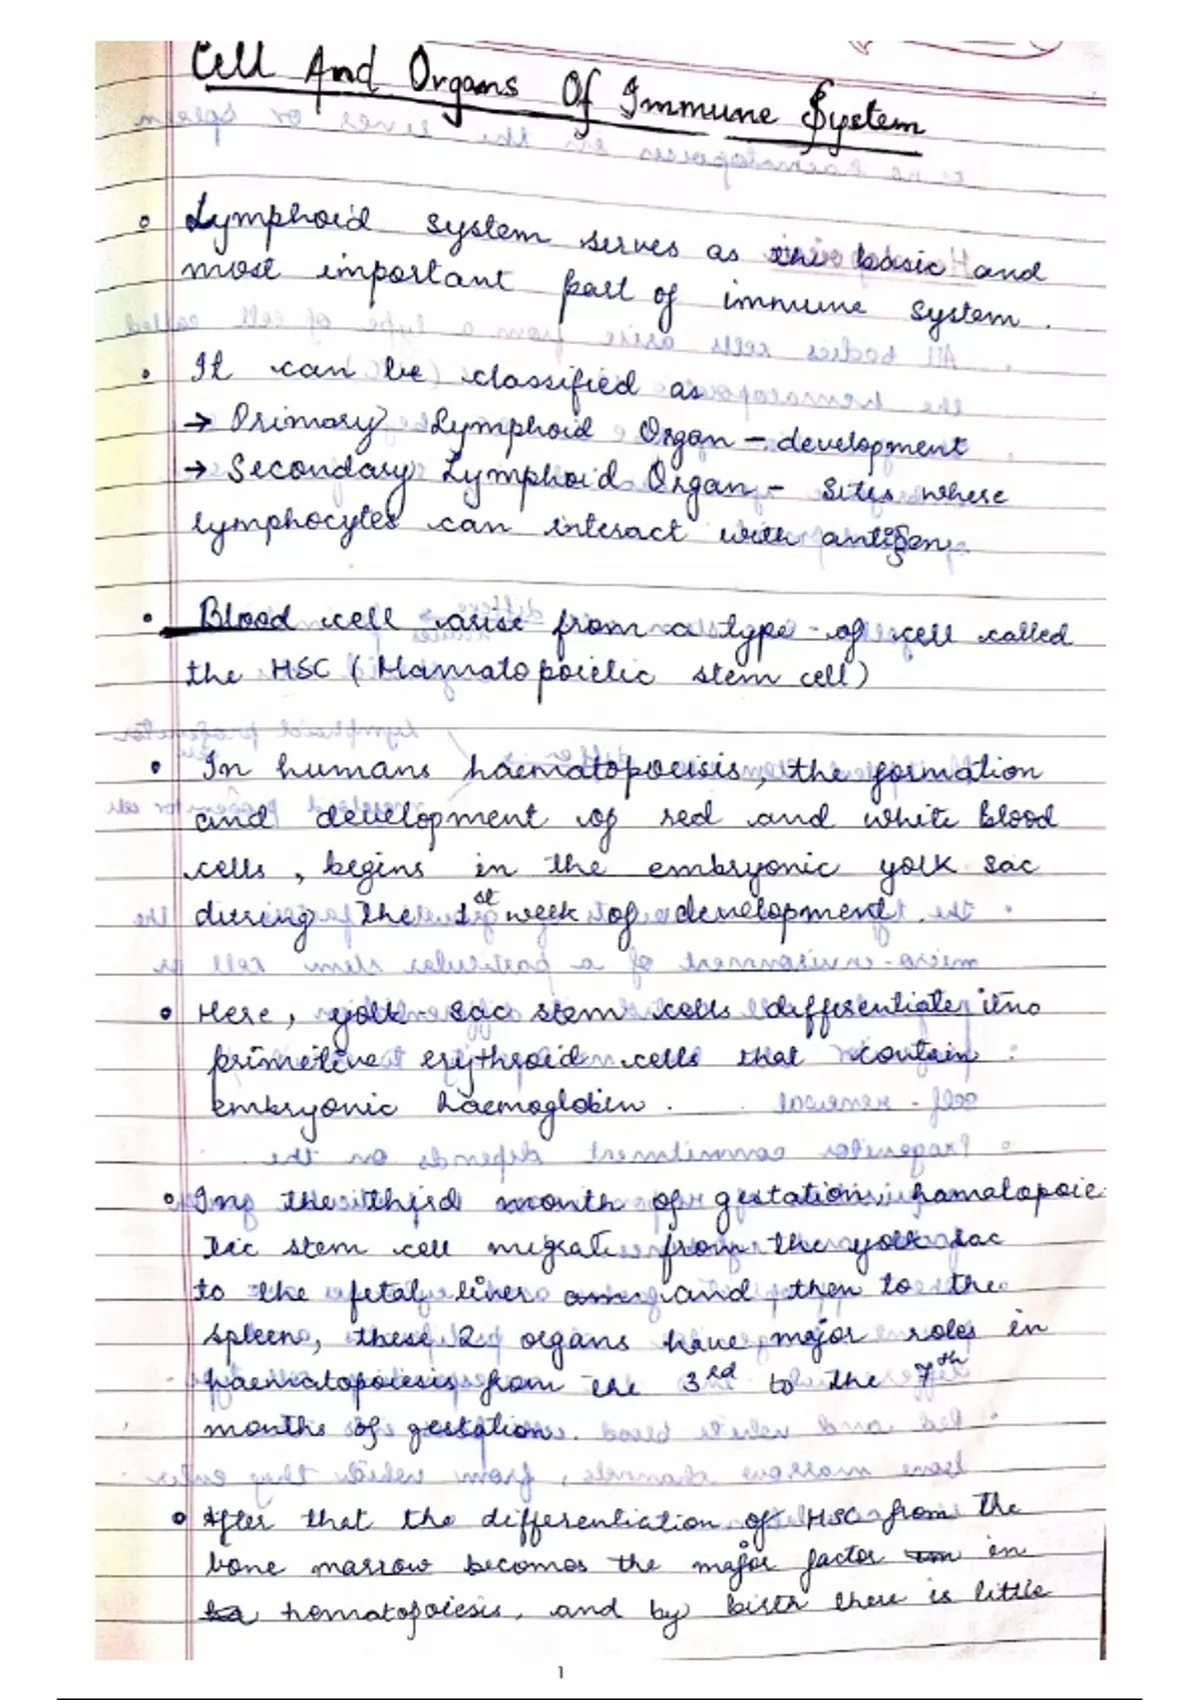 Cell And Organs Of Immune System
Lymphoid system serves as the basic and
most important part of immune system.
It can be classified as
→ Primary Lymphoid Organ - development
→ Secondary Lymphoid Organ - Sites where
lymphocytes can interact with antigen.
Blood cell arise from a type of cell called
the HSC (Hamatopoietic stem cell)
In humans haematopoeisis, the formation
and development of red and white Blood
cells, begins in the embryonic yolk sac
during the 1st week of development.
Here, yolk sac stem cells differentiate itno
primetive erythroid cells that contain
embryonic haemoglobin.
Ing the third month of gestation, hamatopoie
tic stem cell migrate from the yolk sac
to the fetal liver and then to the
spleen, these 2 organs have major roles in
haematopoiesis from the 3rd to the 7th
months of gestation.
After that the differentiation of HSC from the
bone marrow becomes the major factor in
hematopoiesis, and by birth there is little
1